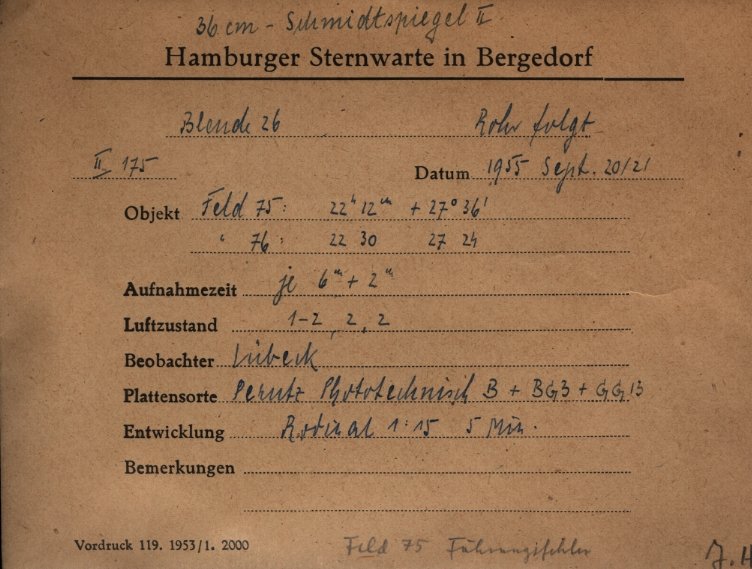 36 cm - Schmidtspiegel II
Hamburger Sternwarte in Bergedorf
Blende 26 Rohr folgt
II 175 Datum 1955 Sept. 20/21
Objekt Feld 75: 22h 12m + 27° 36'
" 76: 22 30 27 24
Aufnahmezeit je 6m + 2m
Luftzustand 1-2, 2, 2
Beobachter Lübeck
Plattensorte Perutz Phototechnisch B + BG3 + GG13
Entwicklung Rodinal 1:15 5 Min.
Bemerkungen
Vordruck 119. 1953/1. 2000 Feld 75 Führungsfehler J. H